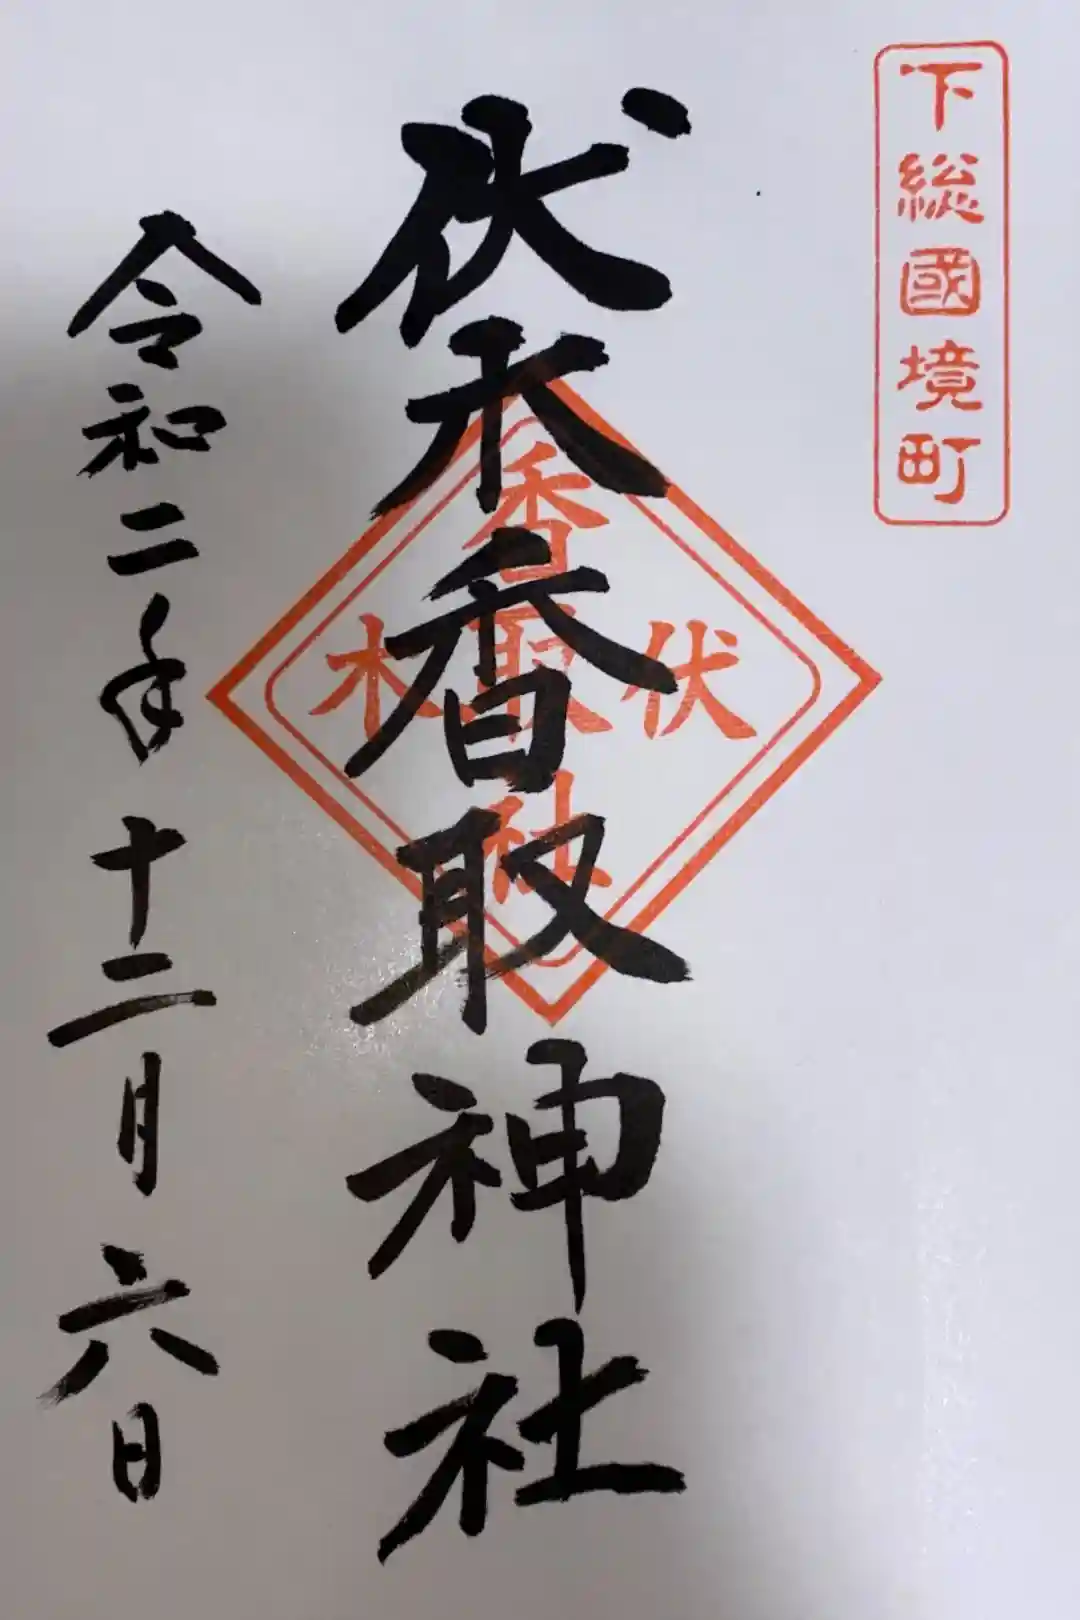 下総國境町
伏木香取神社
香取社
伏木
令和二年十二月六日